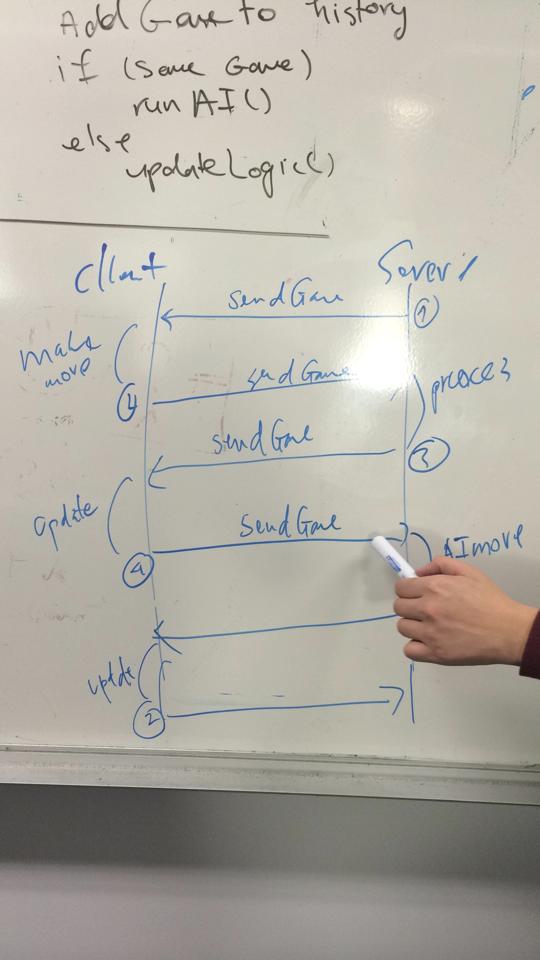 Add Game to history
if (Same Game)
run AI()
else
updateLogic()
Client
Server
sendGame
1
make
move
sendGame
process
sendGame
3
update
SendGame
AI move
4
update
2